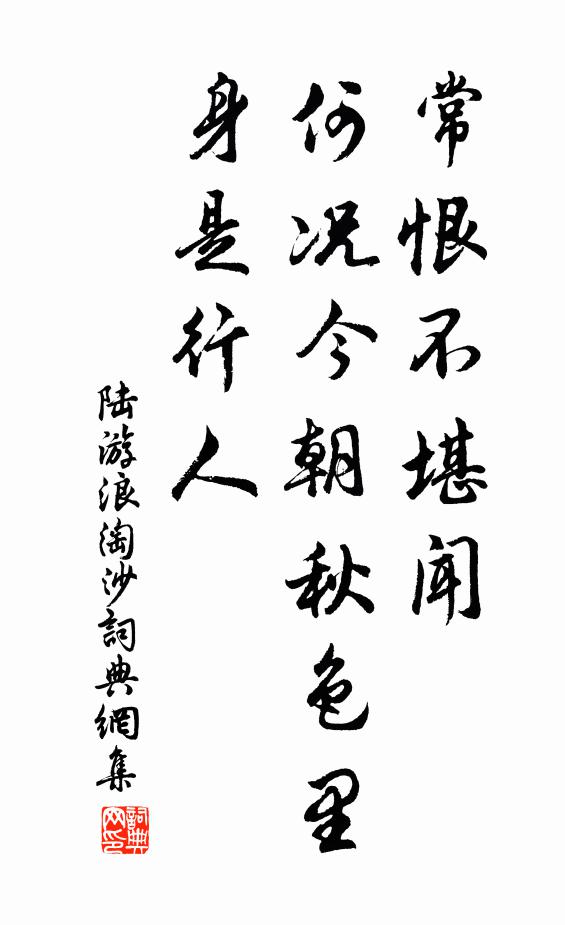 常恨不堪闻
何况今朝秋色里
身是行人
陆游浪淘沙詞典網集
詞典网印